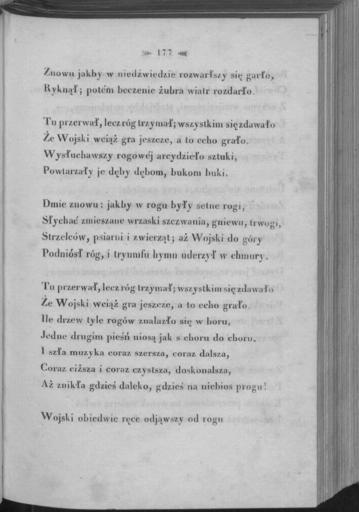 177
Znowu jakby w niedźwiedzie rozwarłszy się garło,
Ryknął; potém beczenie żubra wiatr rozdarło.
Tu przerwał, lecz róg trzymał; wszystkim się zdawało
Że Wojski wciąż gra jeszcze, a to echo grało.
Wysłuchawszy rogowéj arcydzieło sztuki,
Powtarzały je dęby dębom, bukom buki.
Dmie znowu: jakby w rogu były setne rogi,
Słychać zmieszane wrzaski szczwania, gniewu, trwogi,
Strzelców, psiarni i zwierząt; aż Wojski do góry
Podniósł róg, i tryumfu hymn uderzył w chmury.
Tu przerwał, lecz róg trzymał; wszystkim się zdawało
Że Wojski wciąż gra jeszcze, a to echo grało.
Ile drzew tyle rogów znalazło się w boru,
Jedne drugim pieśń niosą jak z choru do choru.
I szła muzyka coraz szersza, coraz dalsza,
Coraz cichsza i coraz czystsza, doskonalsza,
Aż znikła gdzieś daleko, gdzieś na niebios progu!
Wojski obiedwie ręce odjąwszy od rogu